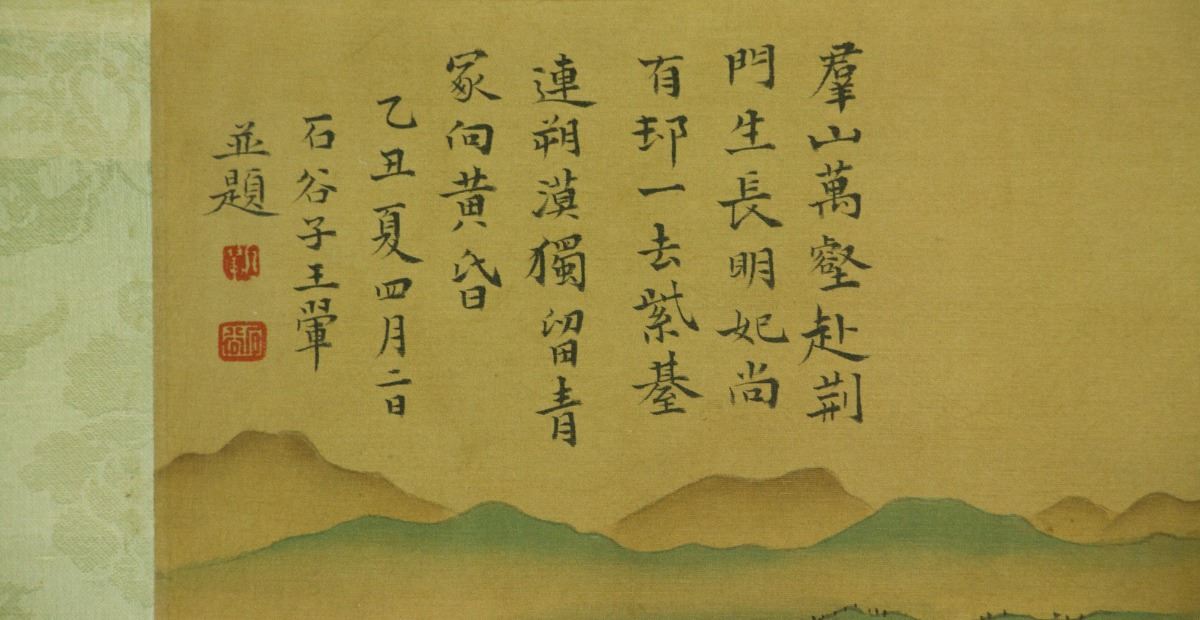 羣山萬壑赴荆
門生長明妃尚
有邨一去紫臺
連朔漠獨留青
冢向黄昏
乙丑夏四月二日
石谷子王翬
並題
石谷